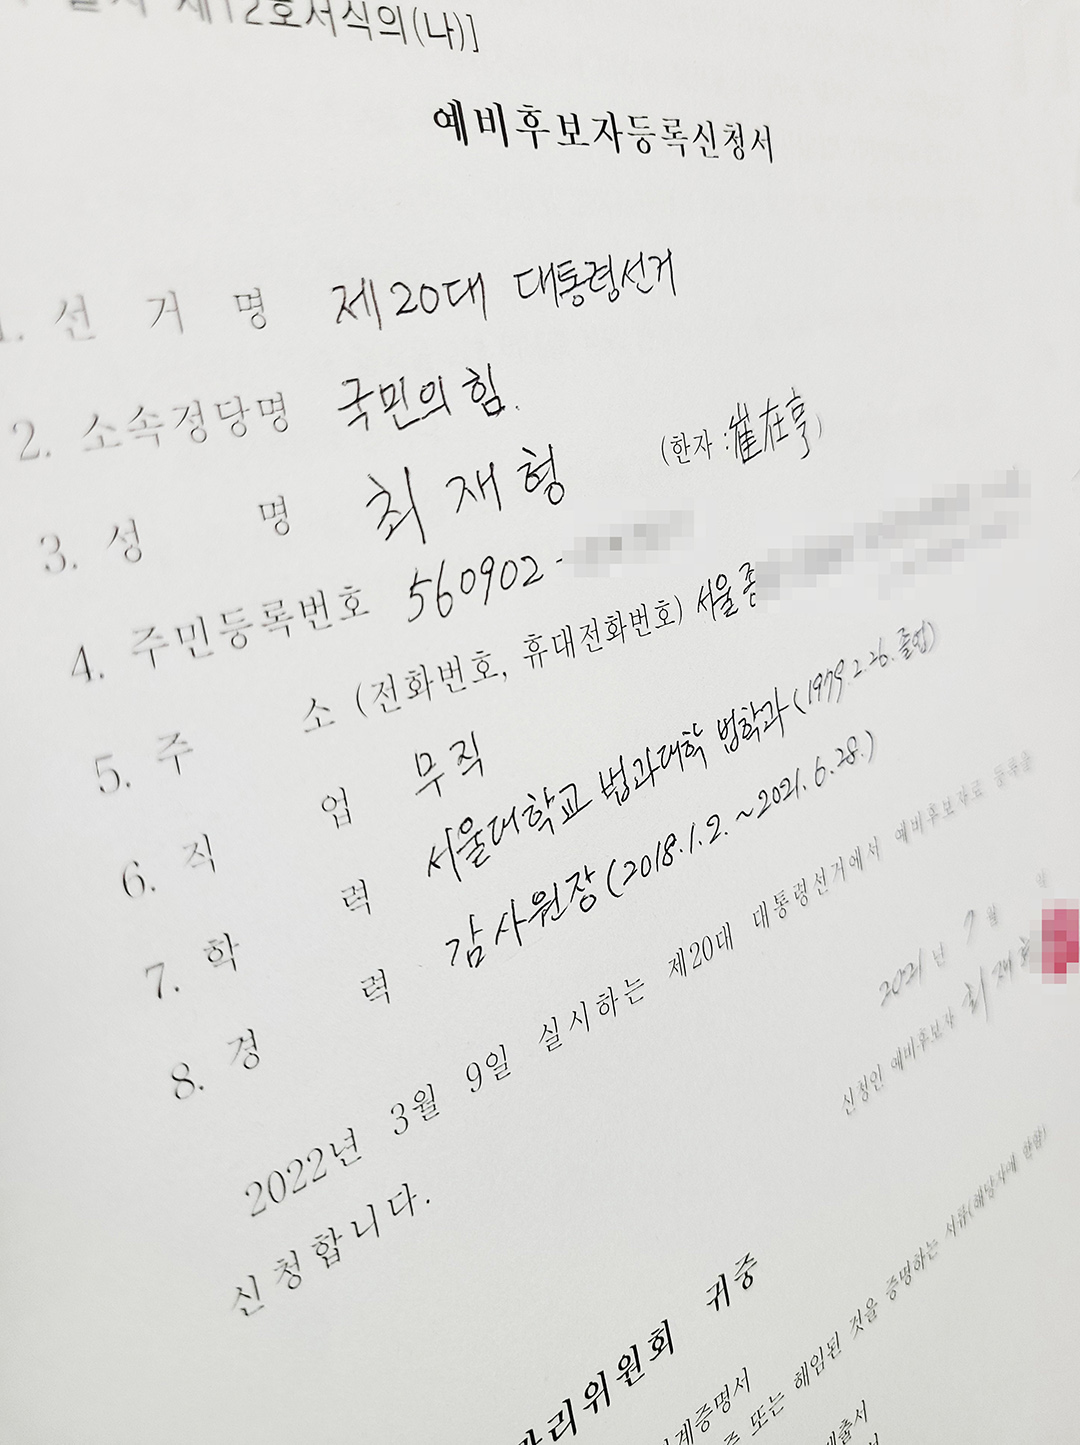 제12호서식의(나)]
예비후보자등록신청서
1. 선 거 명 제20대 대통령선거
2. 소속정당명 국민의힘.
3. 성 명 최재형 (한자 : 崔在亨)
4. 주민등록번호 560902-
5. 주 소 (전화번호, 휴대전화번호) 서울 종
6. 직 업 무직
7. 학 력 서울대학교 법과대학 법학과 (1979.2.26.졸업)
8. 경 력 감사원장 (2018.1.2.~2021.6.28.)
2022년 3월 9일 실시하는 제20대 대통령선거에서 예비후보자로 등록을
신청합니다.
2021년 7월
신청인 예비후보자 최재형
관리위원회 귀중
계증명서
또는 해임된 것을 증명하는 서류(해당자에 한함)
제출서